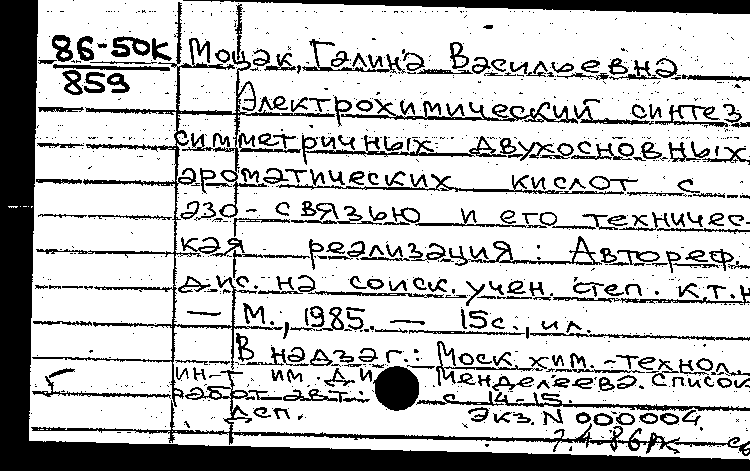 86-50К Моцак, Галина Васильевна
859
Электрохимический синтез
симметричных двухосновных
ароматических кислот с
азо-связью и его техничес-
кая реализация: Автореф.
дис. на соиск. учен. степ. к.т.н
— М., 1985. — 15с., ил.
В надзаг.: Моск. хим.-технол.
ин-т им. Д.И Менделеева. Список
работ авт.: с 14-15.
Деп. Экз. N 000004